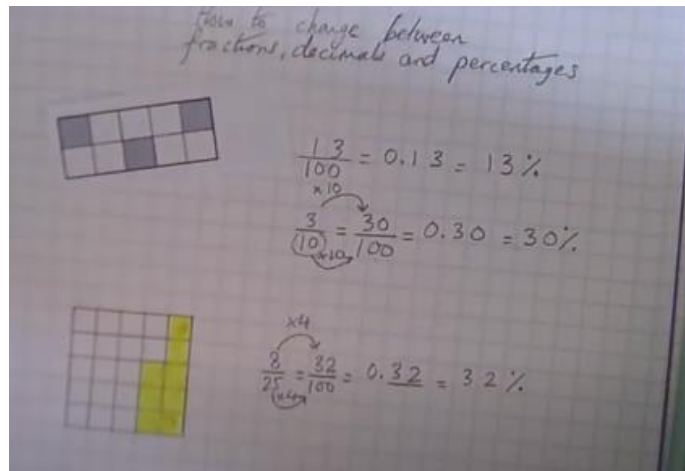 How to change between
fractions, decimals and percentages
13/100 = 0.13 = 13%
×10
3/10 = 30/100 = 0.30 = 30%
×10
×4
8/25 = 32/100 = 0.32 = 32%
×4